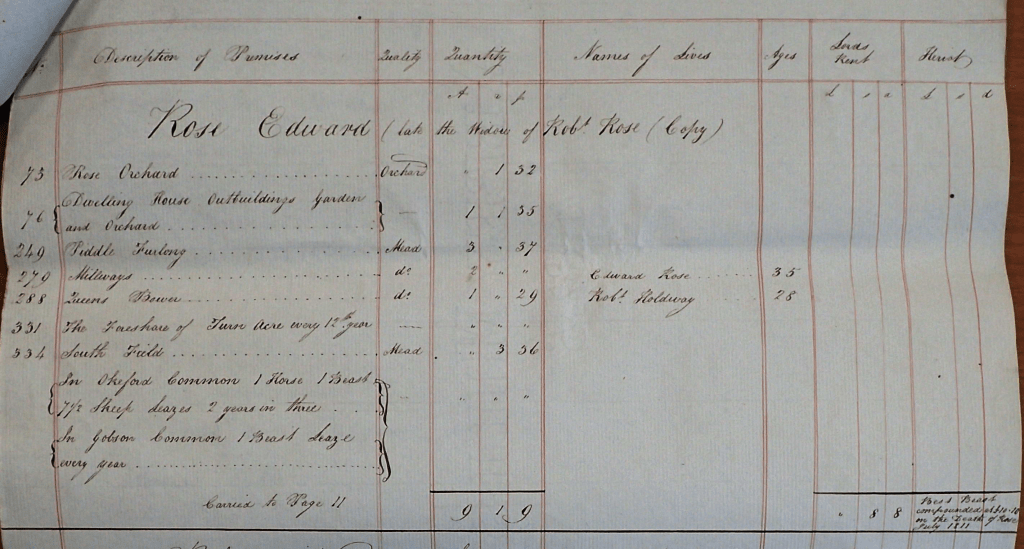 Description of Premises Quality Quantity Names of Lives Ages Lords Rent Heriot
A " p £ s d £ s d
Rose Edward (late the Widow of Robt Rose (Copy)
75 Rose Orchard Orchard " 1 32
76 { Dwelling House Outbuildings Garden
and Orchard } — 1 1 35
249 Piddle Furlong Mead 3 " 37
279 Millways do 2 " " Edward Rose 35
288 Queens Bower do 1 " 29 Robt Holdway 28
331 The Foreshare of Furse Acre every 12th year — " " "
334 South Field Mead " 3 36
{ In Okeford Common 1 Horse 1 Beast
7½ Sheep Leazes 2 years in three } — " " "
{ In Gobson Common 1 Beast Leaze
every year
Carried to Page 11 9 1 9 " 8 8
Best Beast
compounded at £10-10
on the Death of Rose
July 1811